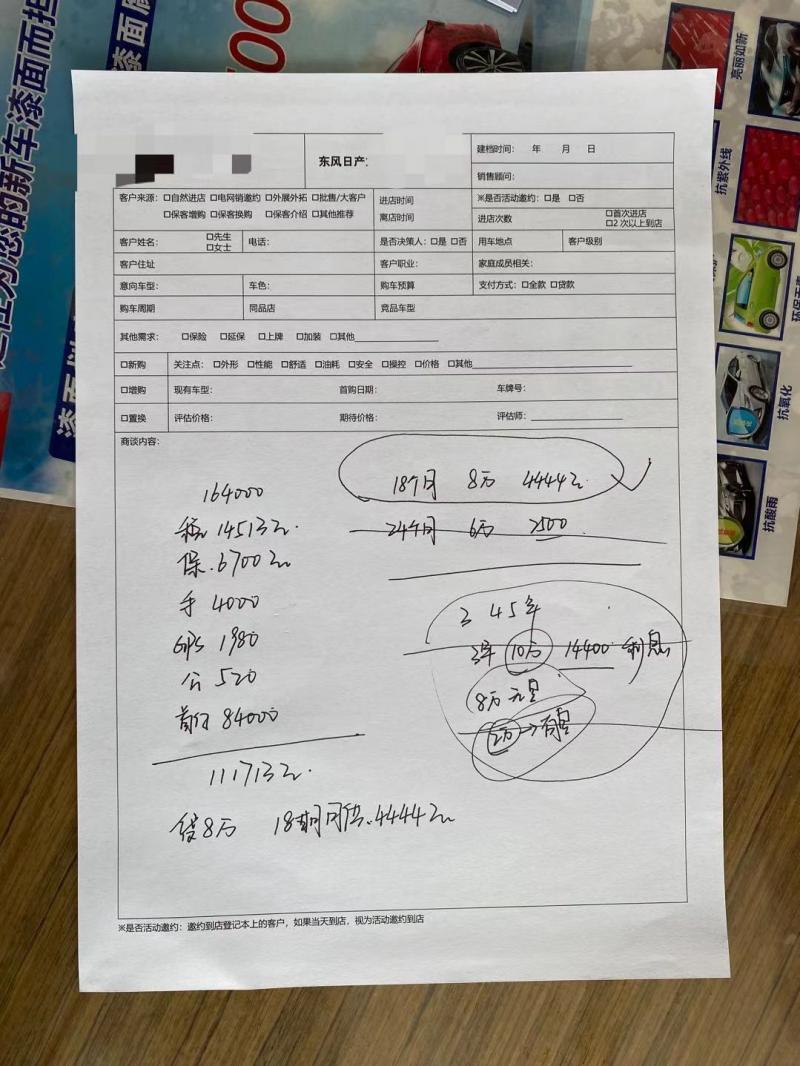 您的新车漆面而担
漆面
00
亮丽如新
抗紫外线
抗氧化
抗酸雨
东风日产:
建档时间: 年 月 日
销售顾问:
客户来源: □自然进店 □电网销邀约 □外展外拓 □批售/大客户
□保客增购 □保客换购 □保客介绍 □其他推荐
进店时间
离店时间
※是否活动邀约: □是 □否
进店次数 □首次进店
□2 次以上到店
客户姓名: □先生
□女士
电话:
是否决策人: □是 □否
用车地点
客户级别
客户住址
客户职业:
家庭成员相关:
意向车型:
车色:
购车预算
支付方式: □全款 □贷款
购车周期
同品店
竞品车型
其他需求: □保险 □延保 □上牌 □加装 □其他
□新购 关注点: □外形 □性能 □舒适 □油耗 □安全 □操控 □价格 □其他
□增购 现有车型: 首购日期: 车牌号:
□置换 评估价格: 期待价格: 评估师:
商谈内容:
164000
税 14513元.
保.6700元
手 4000
GPS 1980
公 520
首付 84000
111713元.
贷8万 18期月供.4444元
18个月 8万 4444元
24个月 6万 2500
3 4 5年
3年 10万 14400 利息
8万 元息
2万→有息
※是否活动邀约: 邀约到店登记本上的客户, 如果当天到店, 视为活动邀约到店